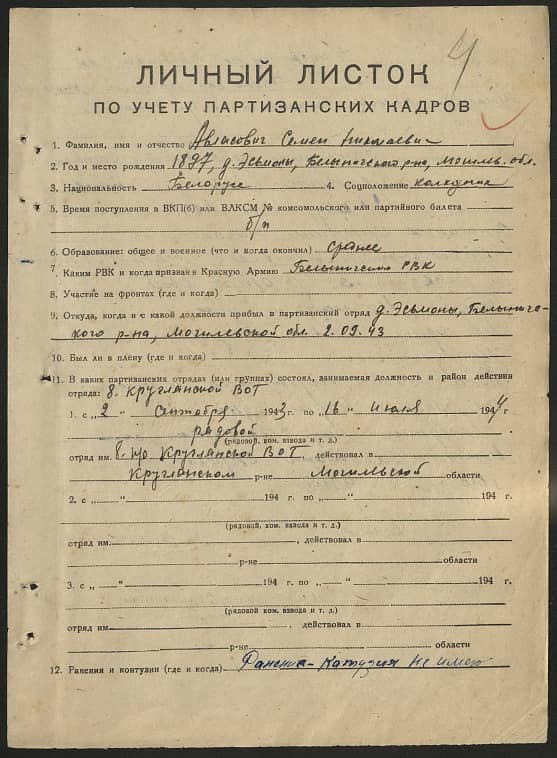 4
ЛИЧНЫЙ ЛИСТОК
ПО УЧЕТУ ПАРТИЗАНСКИХ КАДРОВ
1. Фамилия, имя и отчество Авласович Семен Николаевич
2. Год и место рождения 1897, д. Эсьмоны, Белыничского р-на, Могилев. обл.
3. Национальность Белорус 4. Соцположение колхозник
5. Время поступления в ВКП(б) или ВЛКСМ № комсомольского или партийного билета
б/п
6. Образование: общее и военное (что и когда окончил) среднее
7. Каким РВК и когда призван в Красную Армию Белыничским РВК
8. Участие на фронтах (где и когда)
9. Откуда, когда и с какой должности прибыл в партизанский отряд д. Эсьмоны, Белыниче-
ского р-на, Могилевской обл. 2.09.43
10. Был ли в плену (где и когда)
11. В каких партизанских отрядах (или группах) состоял, занимаемая должность и район действия
отряда: 8. Круглянской ВОГ
1. с „2“ сентября 1943 г. по „16“ июля 1944 г.
рядовой
(рядовой, ком. взвода и т. д.)
отряд им. 8. Круглянской ВОГ, действовал в
Круглянском р-не Могилевской области
2. с „ “ 194 г. по „ “ 194 г.
(рядовой, ком. взвода и т. д.)
отряд им. , действовал в
р-не области
3. с „ “ 194 г. по „ “ 194 г.
(рядовой, ком. взвода и т. д.)
отряд им. , действовал в
р-не области
12. Ранения и контузии (где и когда) Ранения - Катузия не имею